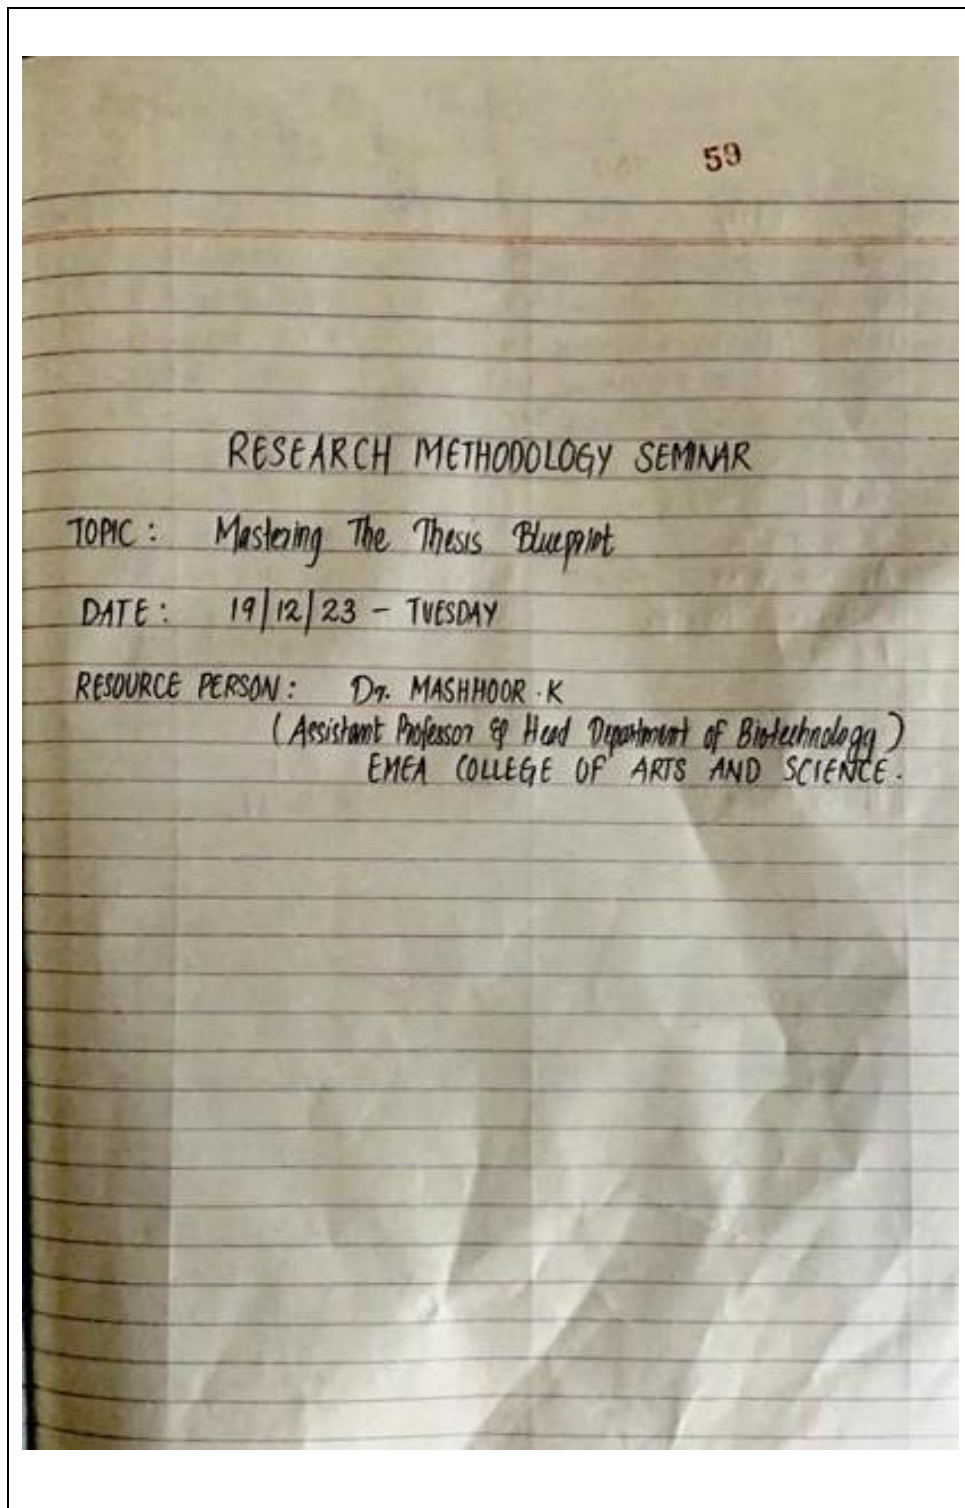 59
RESEARCH METHODOLOGY SEMINAR
TOPIC : Mastering The Thesis Blueprint
DATE : 19/12/23 - TUESDAY
RESOURCE PERSON : Dr. MASHHOOR . K
( Assistant Professor & Head Department of Biotechnology )
EMEA COLLEGE OF ARTS AND SCIENCE .